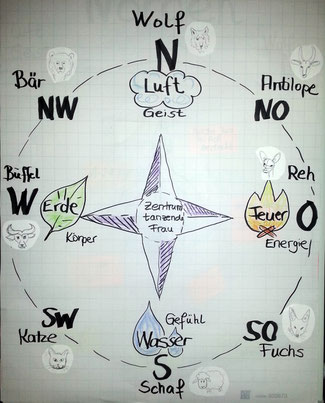 Wolf
N
Luft
Geist
Bär
NW
Antilope
NO
Büffel
W
Erde
Körper
Zentrum
tanzende
Frau
Reh
Feuer
O
Energie
SW
Katze
Gefühl
Wasser
S
Schaf
SO
Fuchs